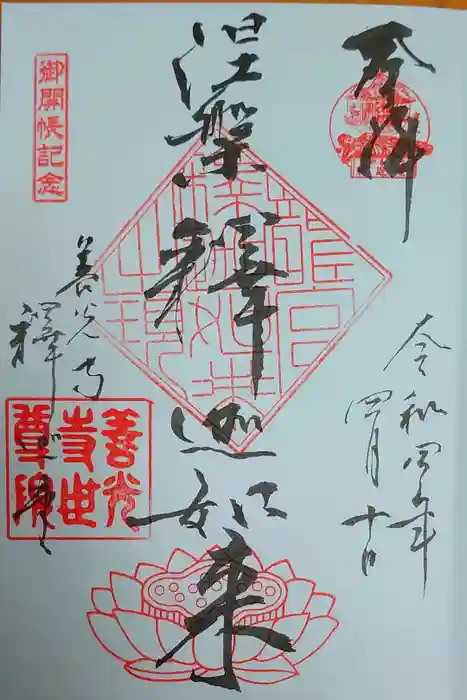 奉拝
令和四年
四月十日
涅槃釋迦如来
御開帳記念
善光寺
釋迦堂
善光
寺世
尊院